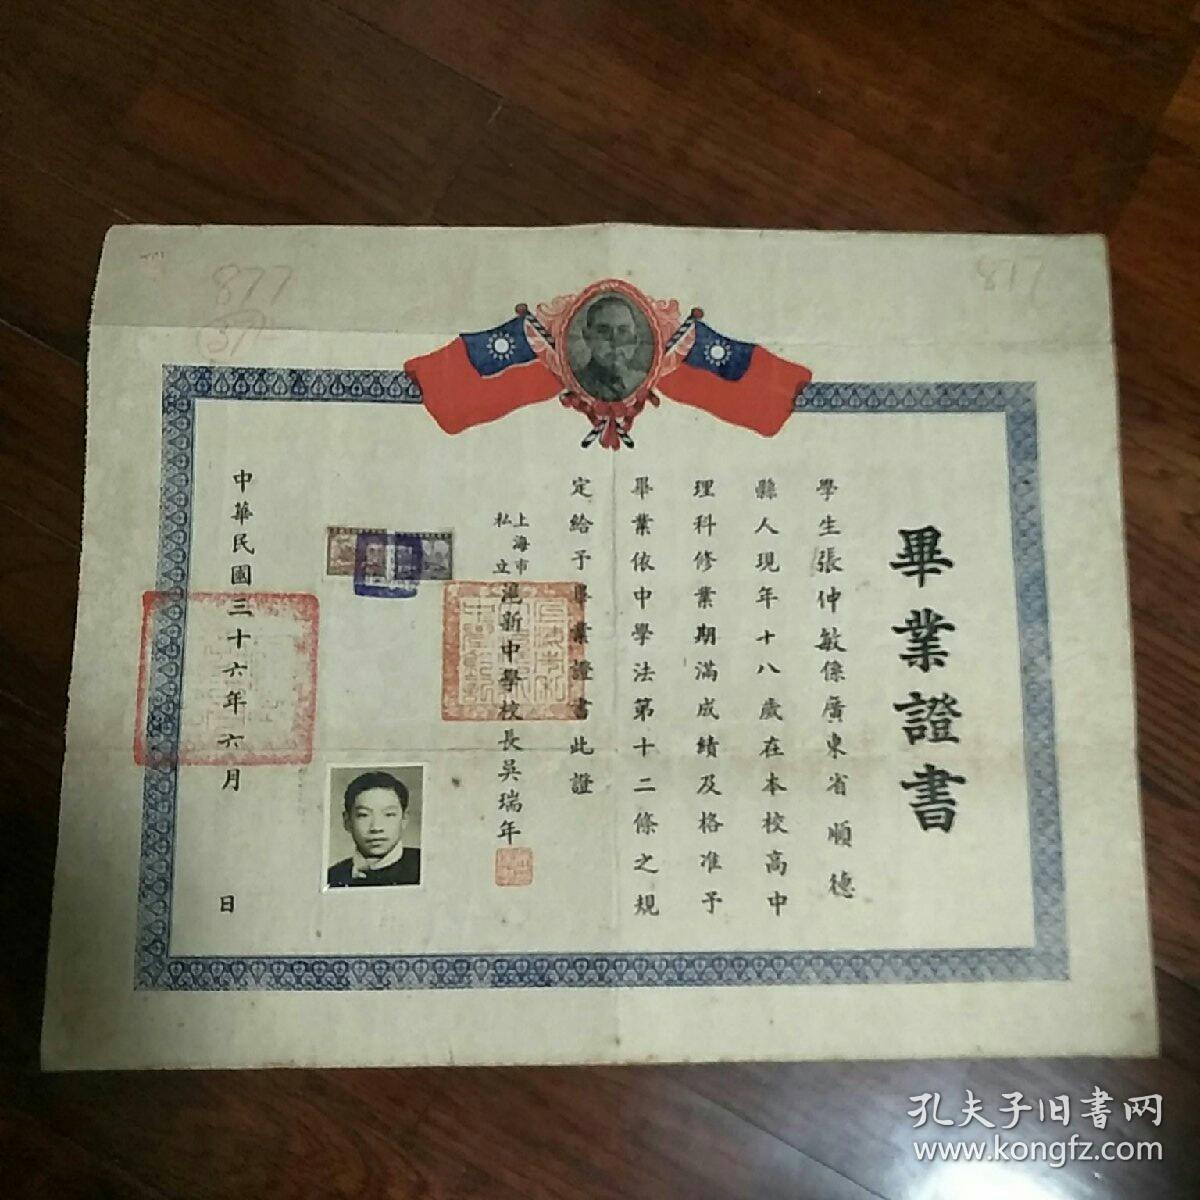 畢業證書
學生張仲敏係廣東省順德
縣人現年十八歲在本校高中
理科修業期滿成績及格准予
畢業依中學法第十二條之規
定給予畢業證書此證
上海市
私立
滬新中學校長吳瑞年
中華民國三十六年六月 日
877
37
817
孔夫子旧書网
www.kongfz.com